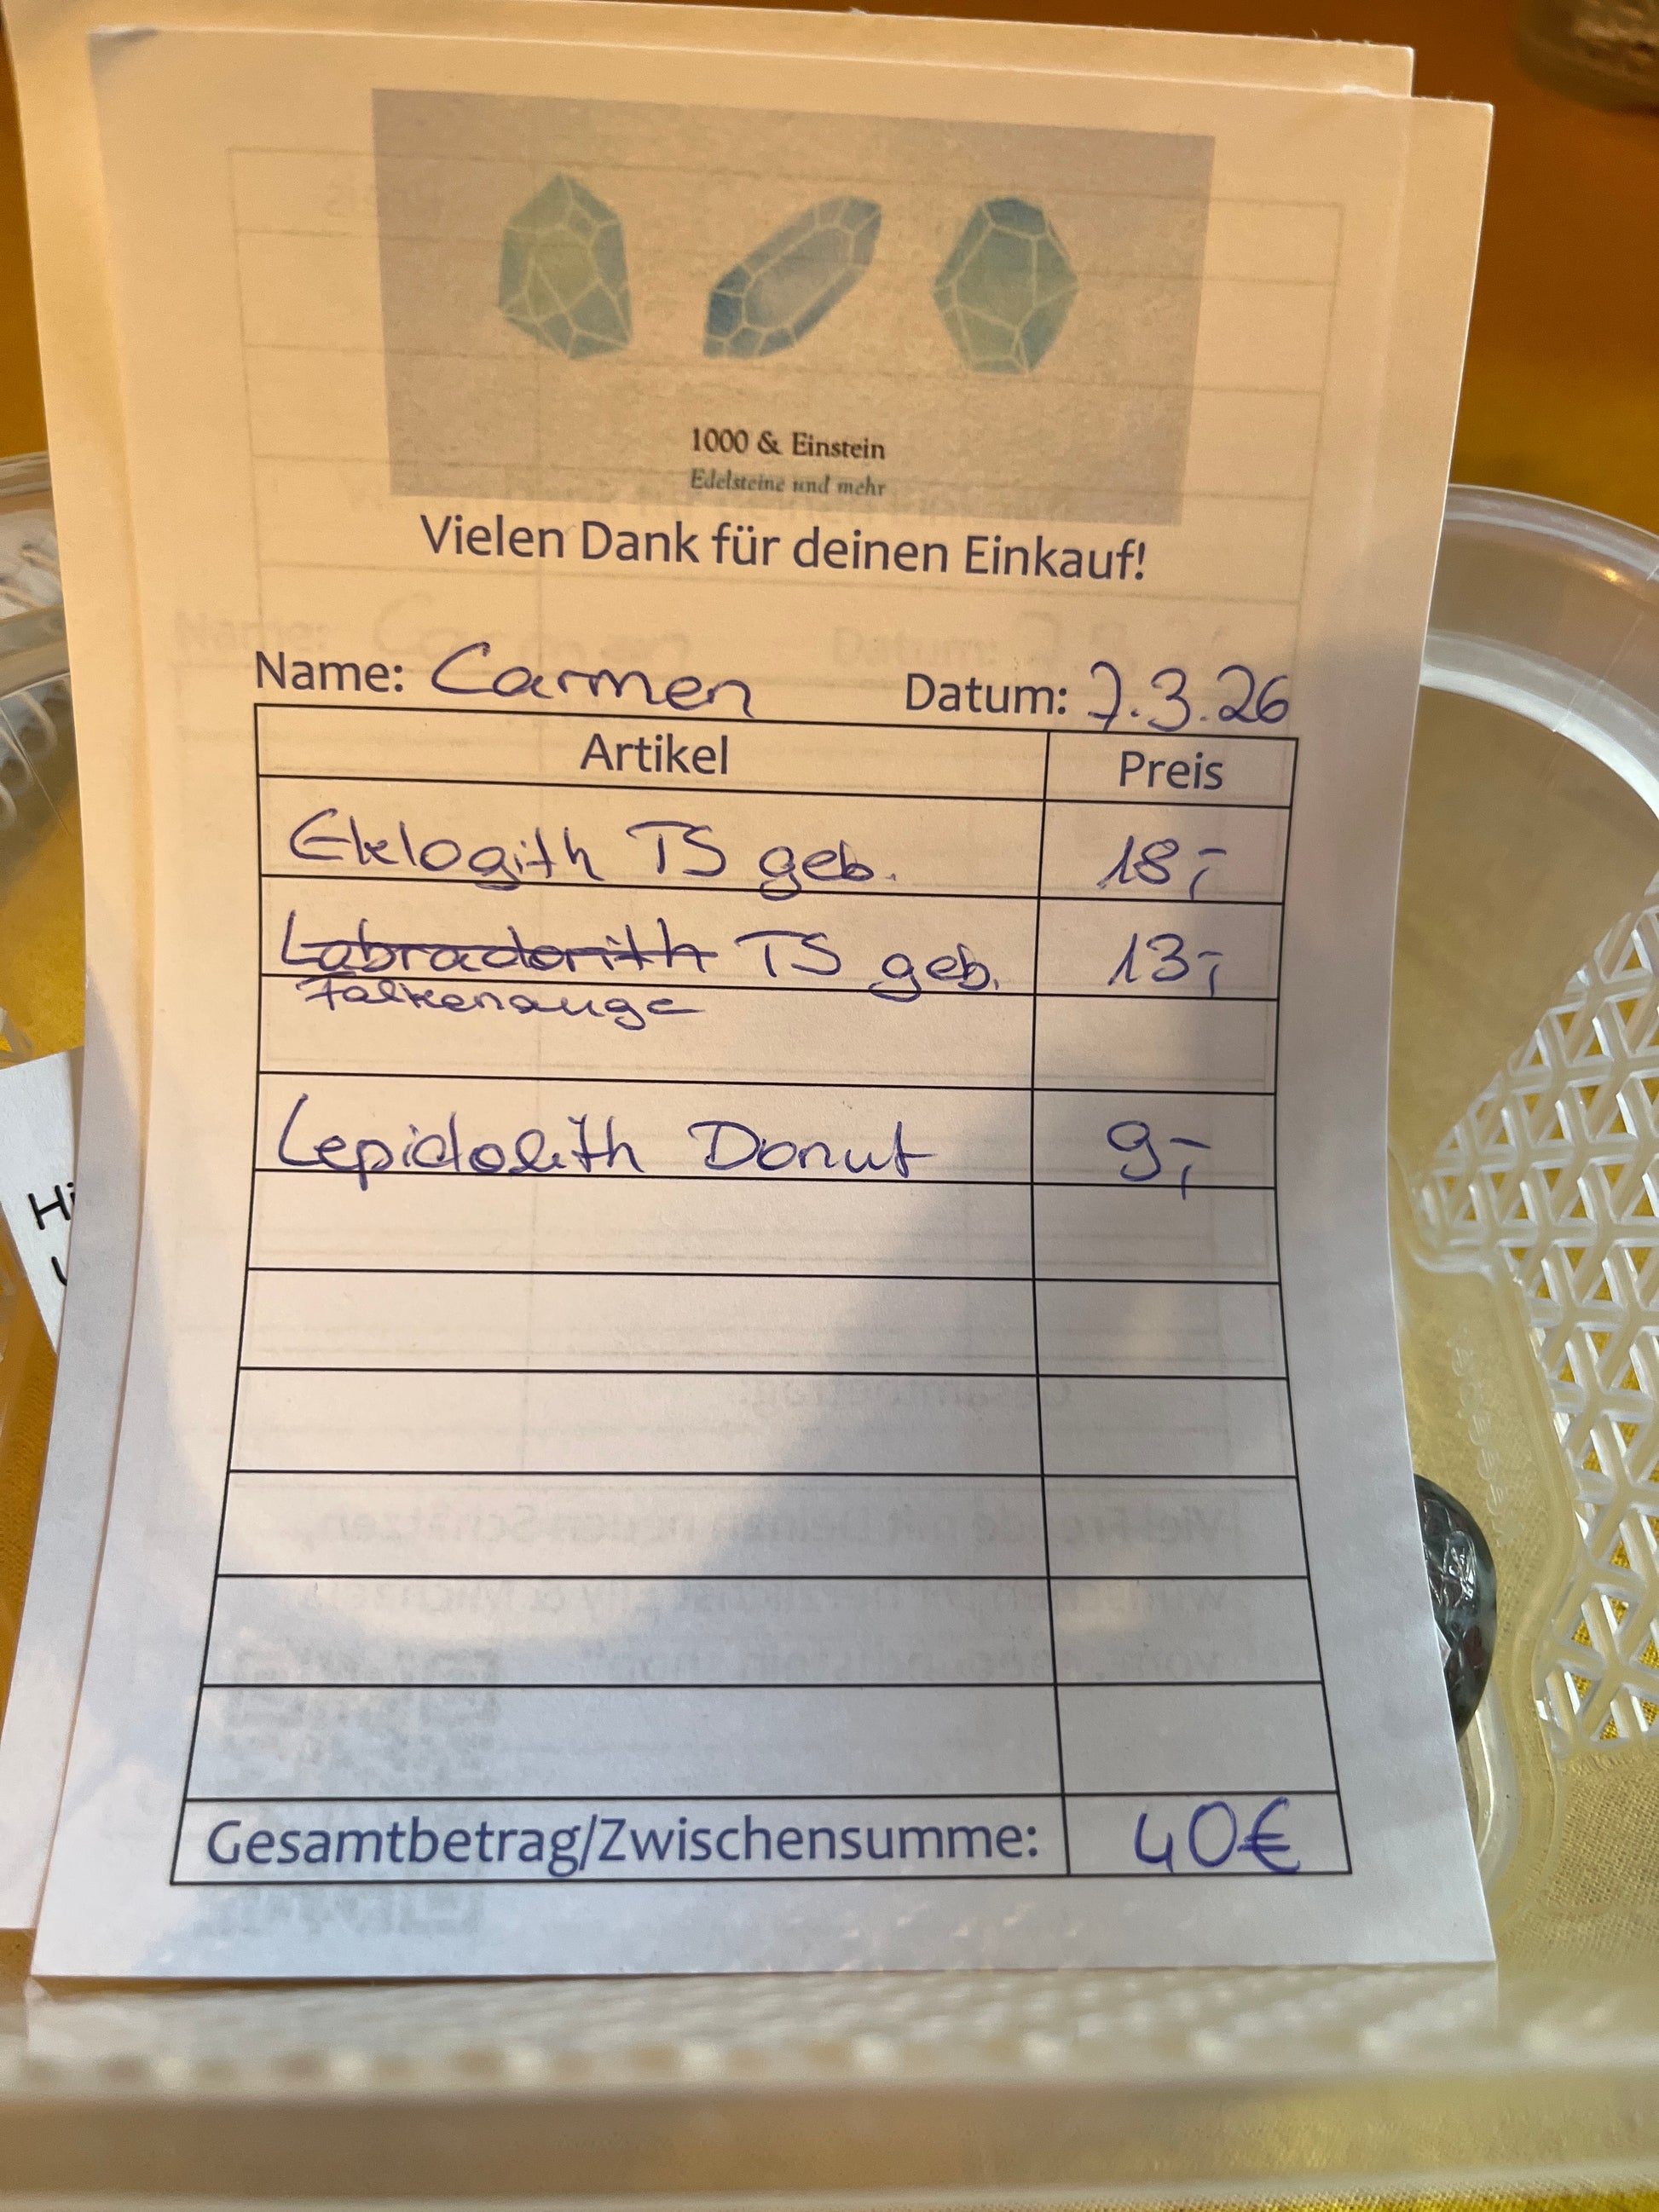 1000 & Einstein
Edelsteine und mehr
Vielen Dank für deinen Einkauf!
Name: Carmen Datum: 7.3.26
Artikel Preis
Eklogith TS geb. 18,-
Labradorith TS geb. 13,-
Falkenauge
Lepidolith Donut 9,-
Gesamtbetrag/Zwischensumme: 40€